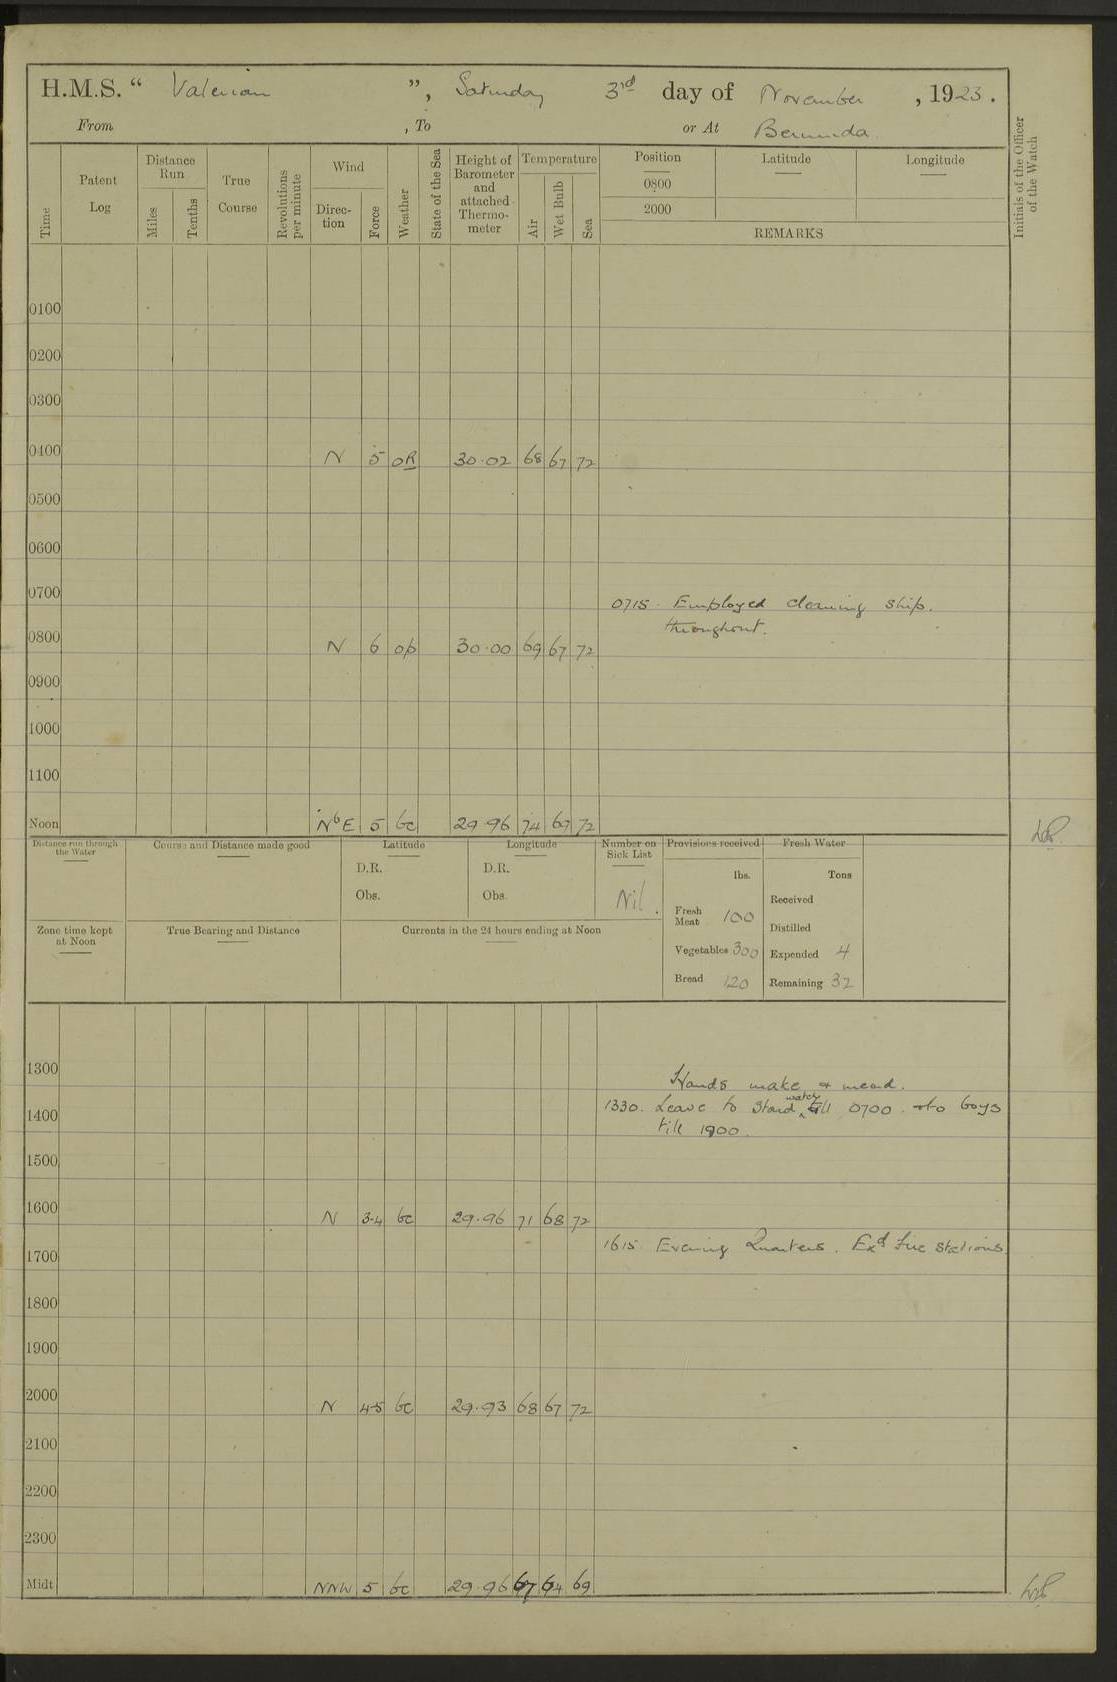 H.M.S. “ Valerian ”, Saturday 3rd day of November , 1923.
From , To or At Bermuda.
Time Patent Log Distance Run Miles Tenths True Course Revolutions per minute Wind Direc- tion Force Weather State of the Sea Height of Barometer and attached Thermo- meter Temperature Air Wet Bulb Sea Position Latitude Longitude Initials of the Officer of the Watch
0800
2000
REMARKS
0100
0200
0300
0400 N 5 oR 30.02 68 67 72
0500
0600
0700
0715. Employed cleaning ship.
throughout.
0800 N 6 op 30.00 69 67 72
0900
1000
1100
Noon NbE 5 bc 29.96 74 69 72
Distance run through the Water Course and Distance made good Latitude Longitude Number on Sick List Provisions received Fresh Water
D.R. D.R. lbs. Tons
Obs. Obs. Nil. Received
Fresh Meat 100
Distilled
Zone time kept at Noon True Bearing and Distance Currents in the 24 hours ending at Noon
Vegetables 300 Expended 4
Bread 120 Remaining 32
1300
Hands make & mend.
1400 1330. Leave to Starbd watch till 0700. & to boys
till 1900.
1500
1600 N 3-4 bc 29.96 71 68 72
1615 Evening Quarters. Exd fire stations
1700
1800
1900
2000 N 4-5 bc 29.93 68 67 72
2100
2200
2300
Midt NNW 5 bc 29.96 67 64 69